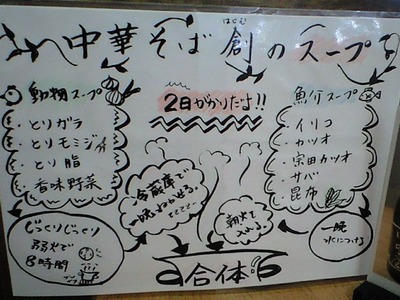 中華そば 創のスープ
はじむ
動物スープ
・とりガラ
・とりモミジ
・とり脂
・香味野菜
じっくりじっくり
弱火で
8時間
2日がかりだよ!!
冷蔵庫で
一晩ねかせる。
魚介スープ
・イリコ
・カツオ
・宗田カツオ
・サバ
・昆布
一晩
水につける
合体